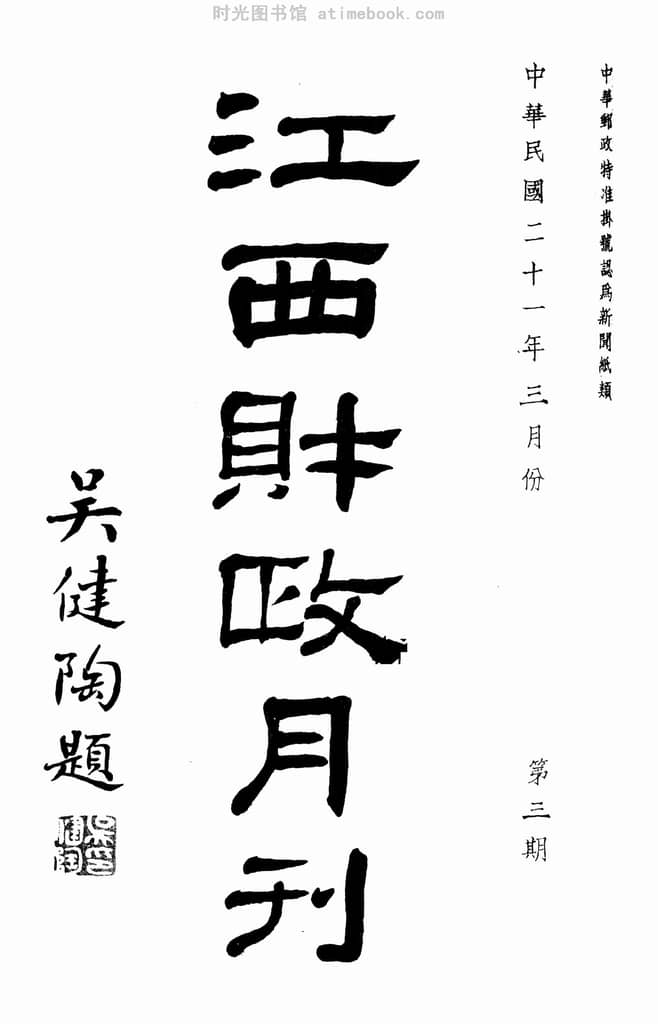 时光图书馆 atimebook.com
中華郵政特准掛號認爲新聞紙類
中華民國二十一年三月份
第三期
江西財政月刊
吳健陶題
吳印
健陶